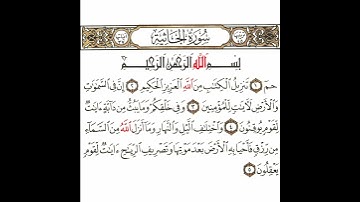 سُورَةُ الجَاثِيَةِ
بِسْمِ اللَّهِ الرَّحْمَٰنِ الرَّحِيمِ
حمٓ ١ تَنزِيلُ الْكِتَٰبِ مِنَ اللَّهِ الْعَزِيزِ الْحَكِيمِ ٢ إِنَّ فِي السَّمَٰوَٰتِ
وَالْأَرْضِ لَءَايَٰتٍ لِّلْمُؤْمِنِينَ ٣ وَفِي خَلْقِكُمْ وَمَا يَبُثُّ مِن دَابَّةٍ ءَايَٰتٌ
لِّقَوْمٍ يُوقِنُونَ ٤ وَاخْتِلَٰفِ الَّيْلِ وَالنَّهَارِ وَمَا أَنزَلَ اللَّهُ مِنَ السَّمَاءِ
مِن رِّزْقٍ فَأَحْيَا بِهِ الْأَرْضَ بَعْدَ مَوْتِهَا وَتَصْرِيفِ الرِّيَٰحِ ءَايَٰتٌ لِّقَوْمٍ
يَعْقِلُونَ ٥